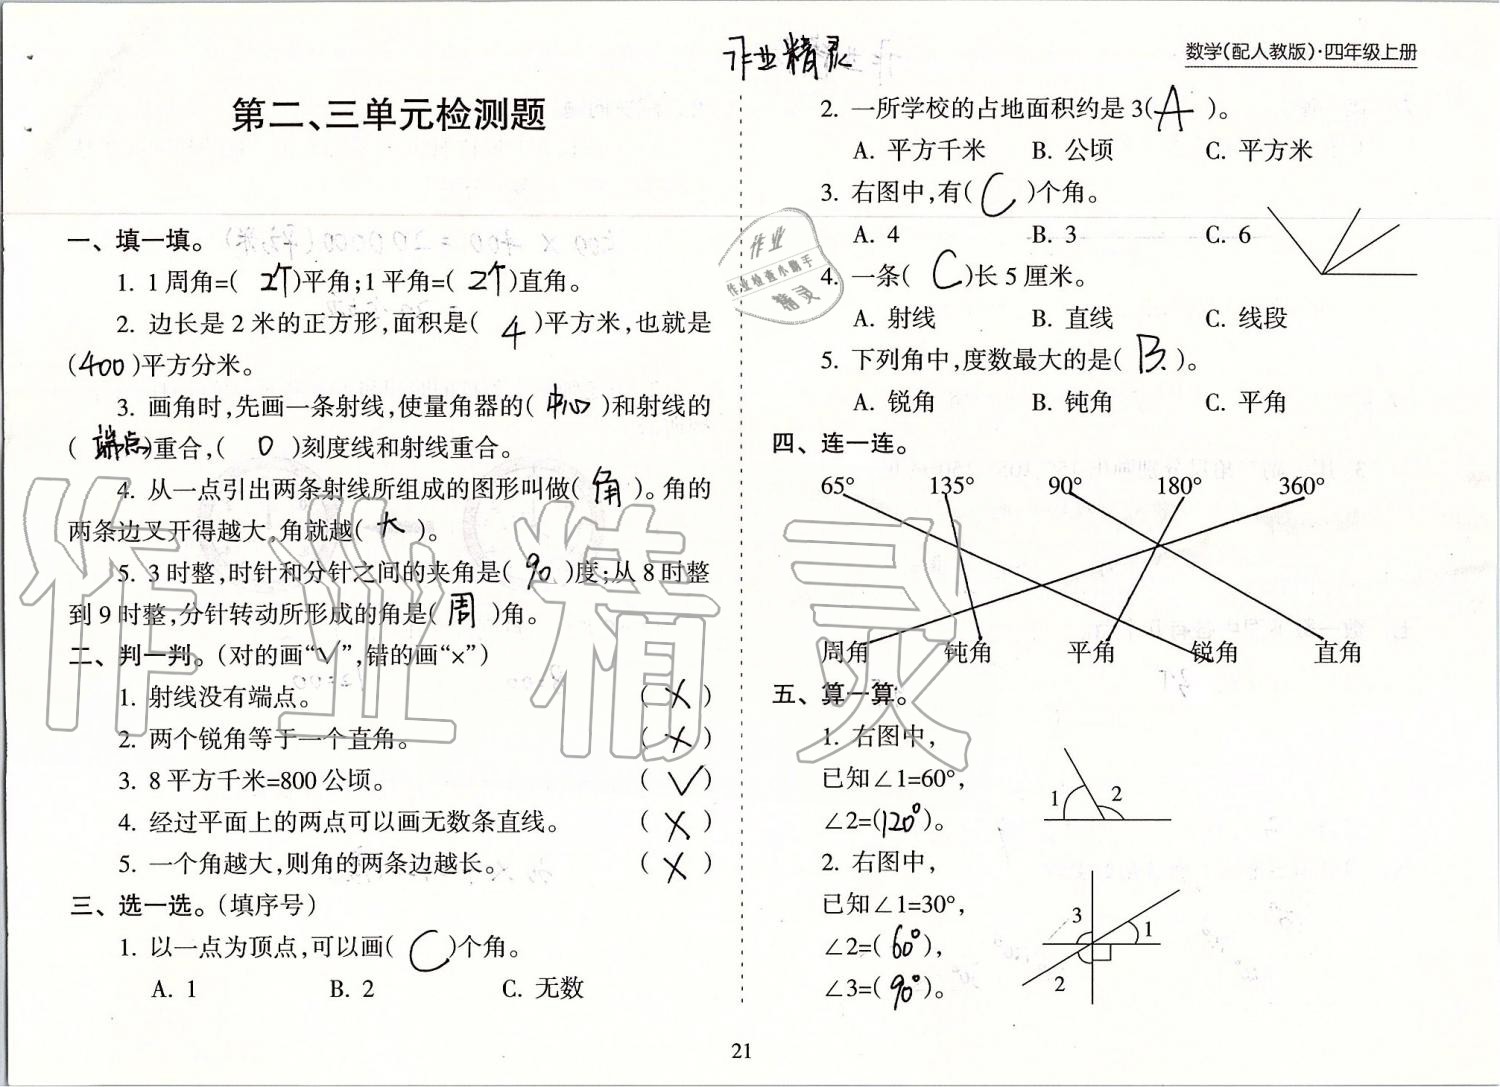 作业精灵
数学(配人教版)·四年级上册
第二、三单元检测题
一、填一填。
1. 1周角=( 2个)平角;1平角=( 2个)直角。
2. 边长是2米的正方形,面积是( 4 )平方米,也就是
(400)平方分米。
3. 画角时,先画一条射线,使量角器的( 中心 )和射线的
( 端点)重合,( 0 )刻度线和射线重合。
4. 从一点引出两条射线所组成的图形叫做( 角 )。角的
两条边叉开得越大,角就越( 大 )。
5. 3时整,时针和分针之间的夹角是( 90 )度;从8时整
到9时整,分针转动所形成的角是( 周 )角。
二、判一判。(对的画“√”,错的画“×”)
1. 射线没有端点。 ( × )
2. 两个锐角等于一个直角。 ( × )
3. 8平方千米=800公顷。 ( √ )
4. 经过平面上的两点可以画无数条直线。 ( × )
5. 一个角越大,则角的两条边越长。 ( × )
三、选一选。(填序号)
1. 以一点为顶点,可以画( C )个角。
A. 1 B. 2 C. 无数
2. 一所学校的占地面积约是3( A )。
A. 平方千米 B. 公顷 C. 平方米
3. 右图中,有( C )个角。
A. 4 B. 3 C. 6
4. 一条( C )长5厘米。
A. 射线 B. 直线 C. 线段
5. 下列角中,度数最大的是( B )。
A. 锐角 B. 钝角 C. 平角
四、连一连。
65° 135° 90° 180° 360°
周角 钝角 平角 锐角 直角
五、算一算。
1. 右图中,
已知∠1=60°,
∠2=(120°)。
1 2
2. 右图中,
已知∠1=30°,
∠2=( 60°),
∠3=( 90°)。
3 1
2
21
作业
作业检查小助手
精灵
作业精灵